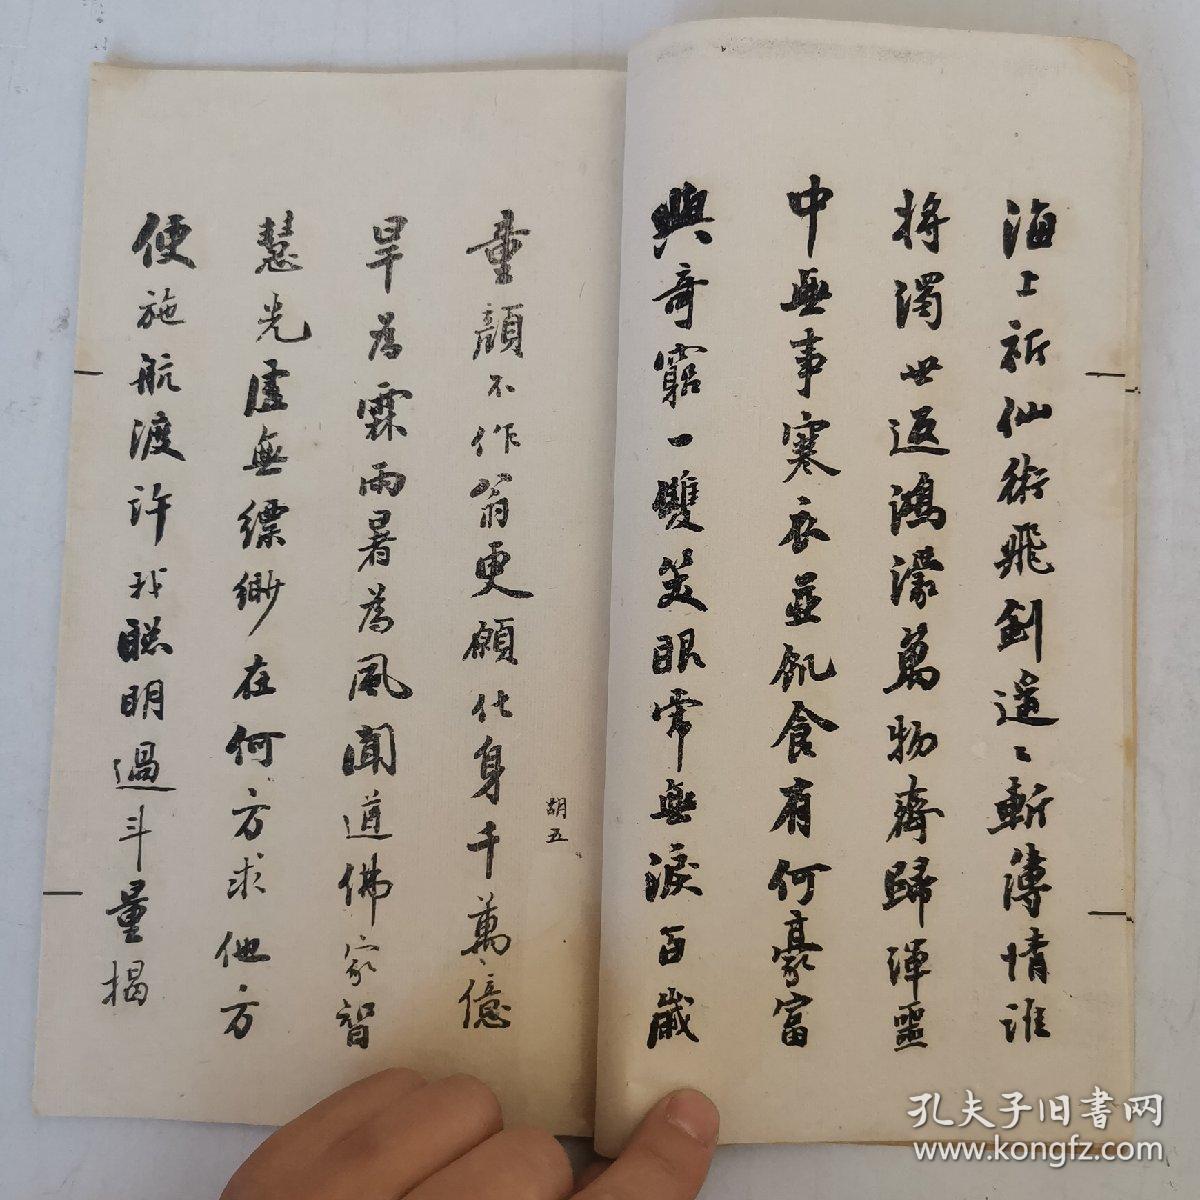 海上祈仙術飛劍遥〻斬薄情誰
將濁世返鴻濛萬物齊歸渾噩
中無事寒衣並飢食有何豪富
與奇窮一雙笑眼常無淚百歲
童顏不作翁更願化身千萬億
旱為霖雨暑為風聞道佛家智
慧光虛無縹緲在何方求他方
便施航渡許我聰明過斗量揭
胡五
孔夫子旧書网
www.kongfz.com